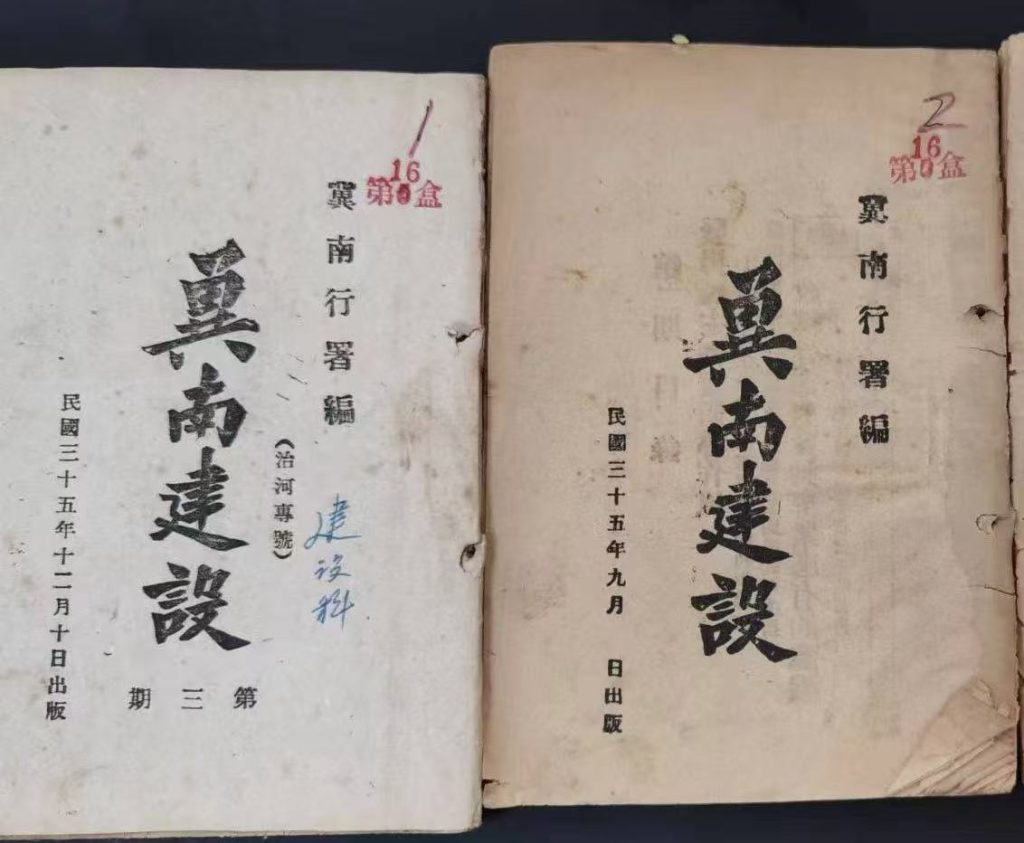 1
第16盒
冀南行署編
冀南建設
(治河專號)
建设科
第三期
民國三十五年十二月十日出版
2
第16盒
冀南行署編
冀南建設
民國三十五年九月 日出版